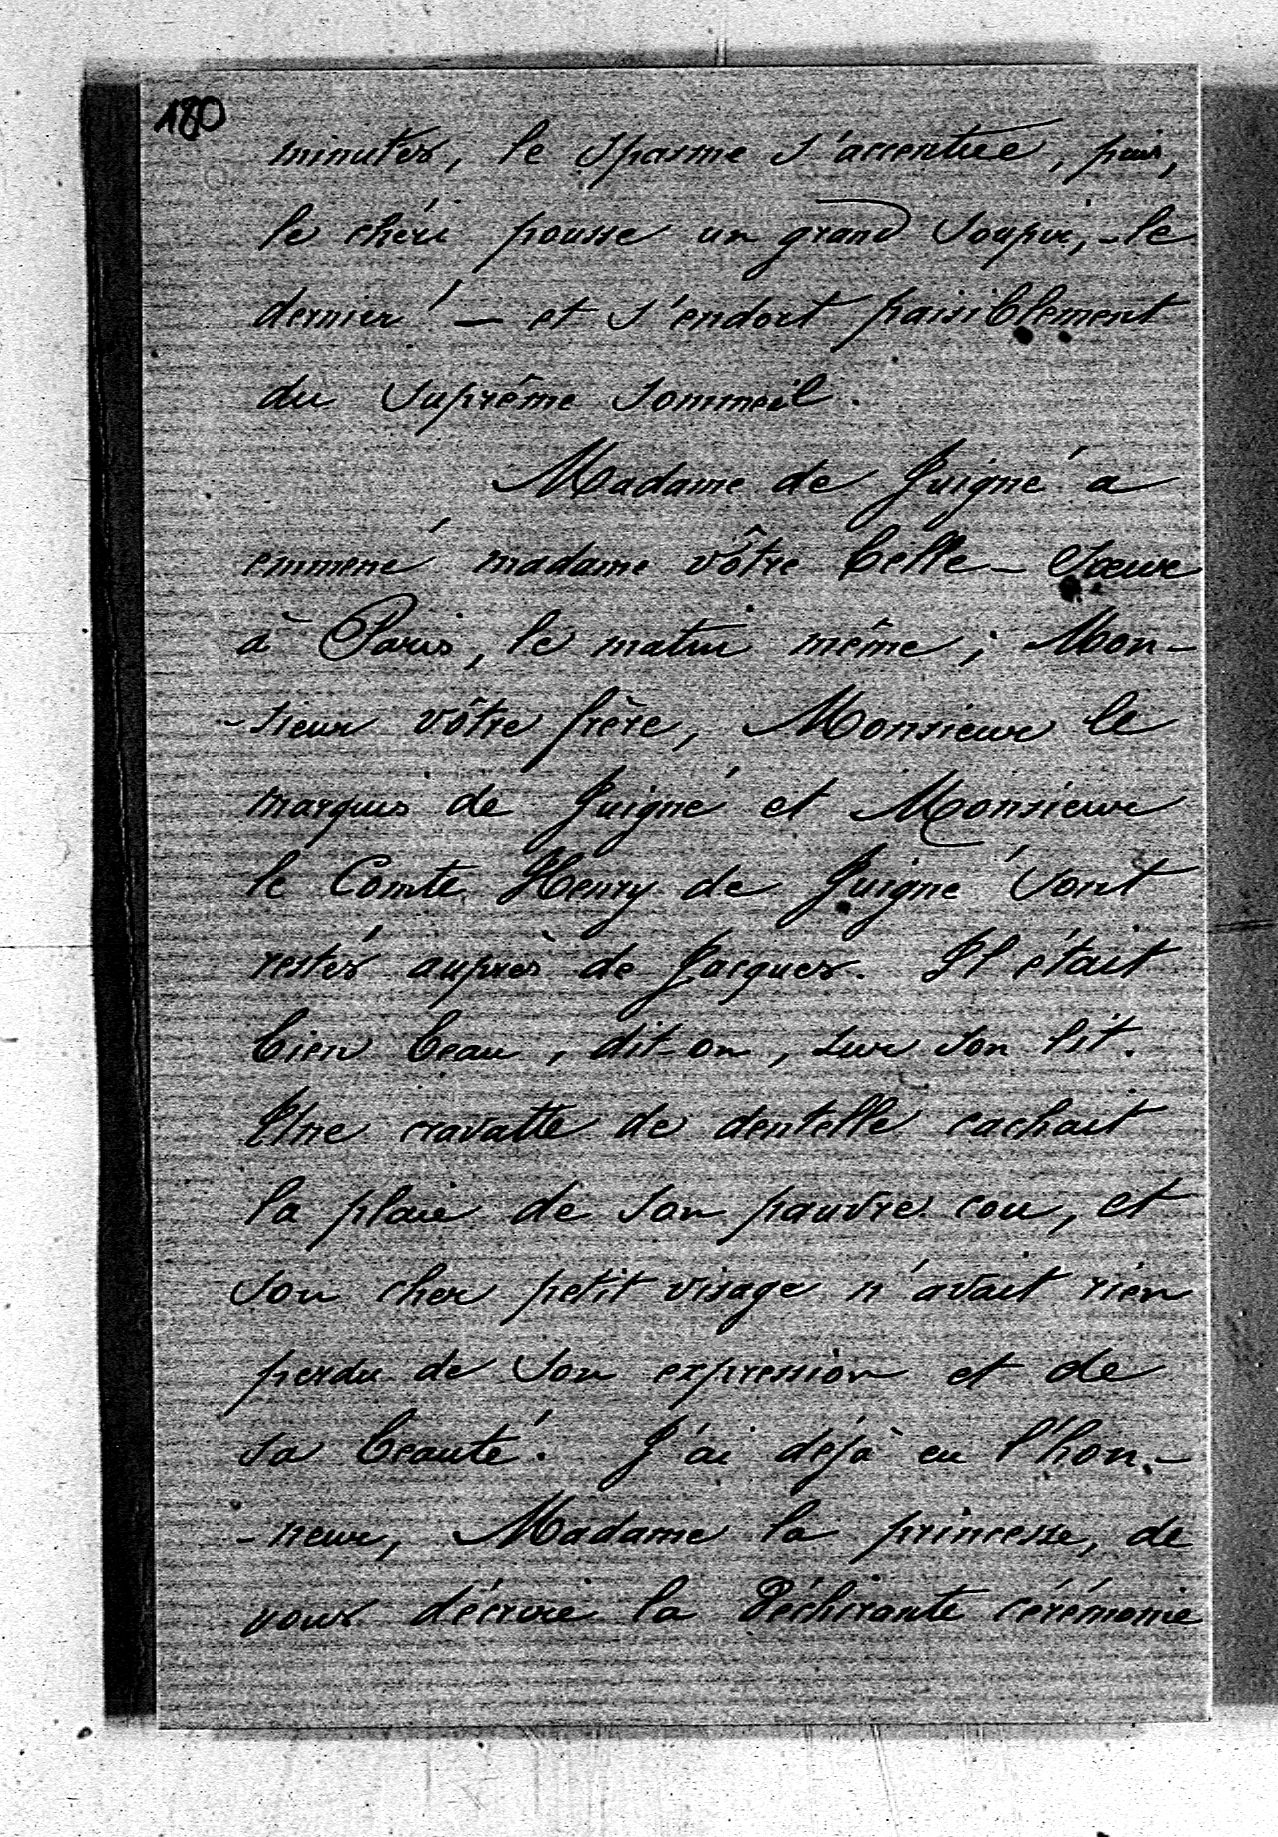 180
minutes, le spasme s'accentue, puis,
le chéri pousse un grand soupir, - le
dernier ! — et s'endort paisiblement
du suprême sommeil.
Madame de Juigné a
emmené madame vôtre belle-sœur
à Paris, le matin même ; Mon-
-sieur vôtre frère, Monsieur le
marquis de Juigné et Monsieur
le Comte Henry de Juigné sont
restés auprès de Jacques. Il était
bien beau, dit-on, sur son lit.
Une cravatte de dentelle cachait
la plaie de son pauvre cou, et
son cher petit visage n'avait rien
perdu de son expression et de
sa beauté. J'ai déjà eu l'hon-
-neur, Madame la princesse, de
vous décrire la déchirante cérémonie